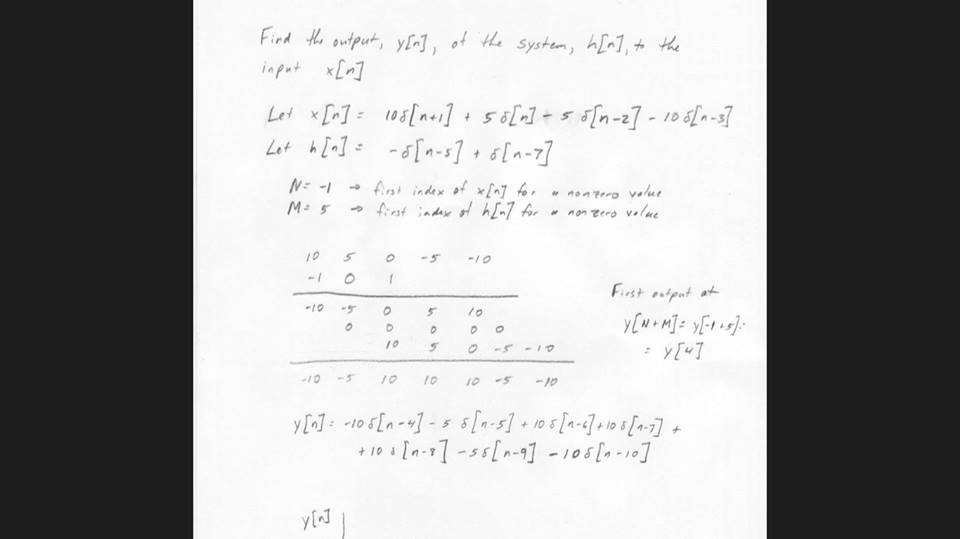 Find the output, y[n], of the system, h[n], to the
input x[n]
Let x[n] = 10δ[n+1] + 5δ[n] - 5δ[n-2] - 10δ[n-3]
Let h[n] = -δ[n-5] + δ[n-7]
N= -1 → first index of x[n] for a nonzero value
M= 5 → first index of h[n] for a nonzero value
10 5 0 -5 -10
-1 0 1
-10 -5 0 5 10
0 0 0 0 0
10 5 0 -5 -10
-10 -5 10 10 10 -5 -10
First output at
y[N+M] = y[-1+5] =
= y[4]
y[n] = -10δ[n-4] - 5δ[n-5] + 10δ[n-6] + 10δ[n-7] +
+10δ[n-8] - 5δ[n-9] - 10δ[n-10]
y[n]